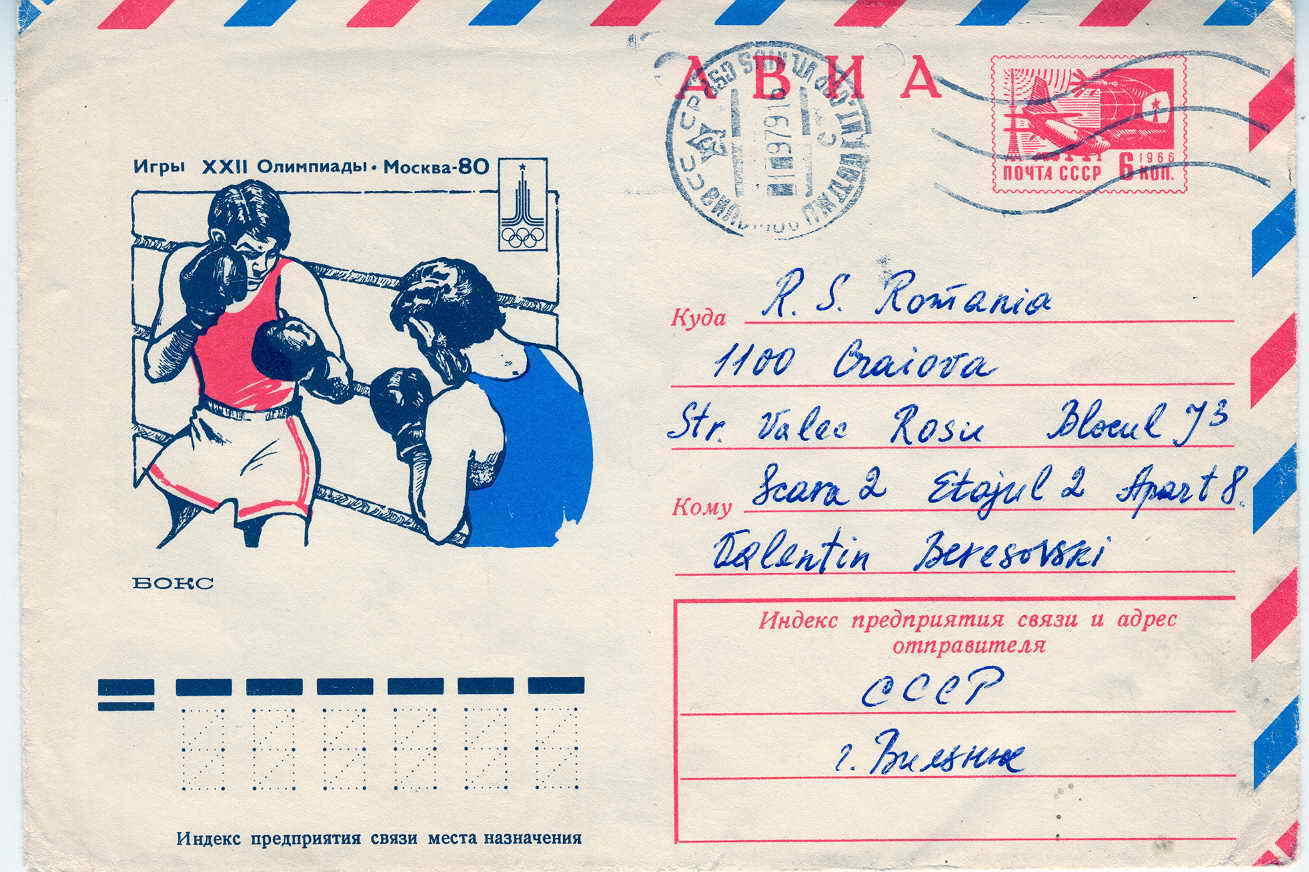 АВИА
1966
ПОЧТА СССР 6 КОП.
Игры XXII Олимпиады • Москва-80
БОКС
Куда R. S. România
1100 Craiova
Str. Valec Rosie Blocul J3
Кому Scara 2 Etajul 2 Apart 8.
Valentin Beresovski
Индекс предприятия связи и адрес
отправителя
СССР
г. Вильнюс
Индекс предприятия связи места назначения